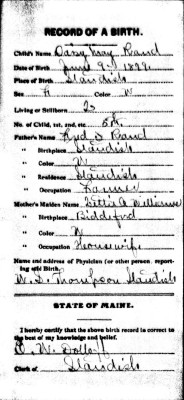 RECORD OF A BIRTH.
Child's Name Daisy May Rand
Date of Birth June 9 - 1892
Place of Birth Standish
Sex F Color W
Living or Stillborn
No. of Child, 1st, 2nd, etc. 5th
Father's Name Rand
" Birthplace Standish
" Color W
" Residence Standish
" Occupation Farmer
Mother's Maiden Name A Williams
" Birthplace Biddeford
" Color W
" Occupation Housewife
Name and address of Physician (or other person reporting said Birth)
W. S. Thompson Standish
STATE OF MAINE.
I hereby certify that the above birth record is correct to
the best of my knowledge and belief.
W. Dolloff
Clerk of Standish